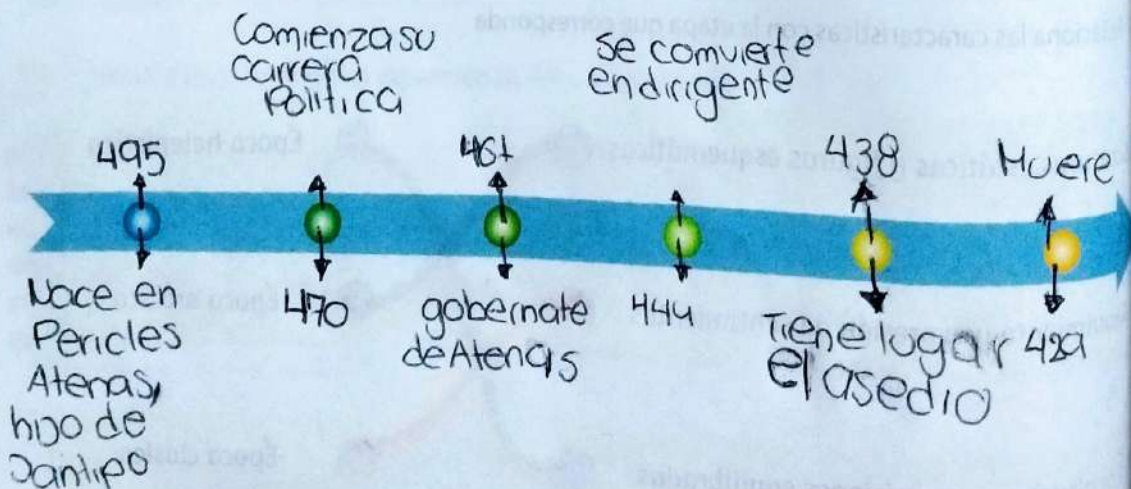 Comienza su
carrera
Política
se comvierte
en dirigente
495
461
438
Muere
Nace en
Pericles
Atenas,
hijo de
Jantipo
470
gobernate
de Atenas
444
Tiene lugar
el asedio
429